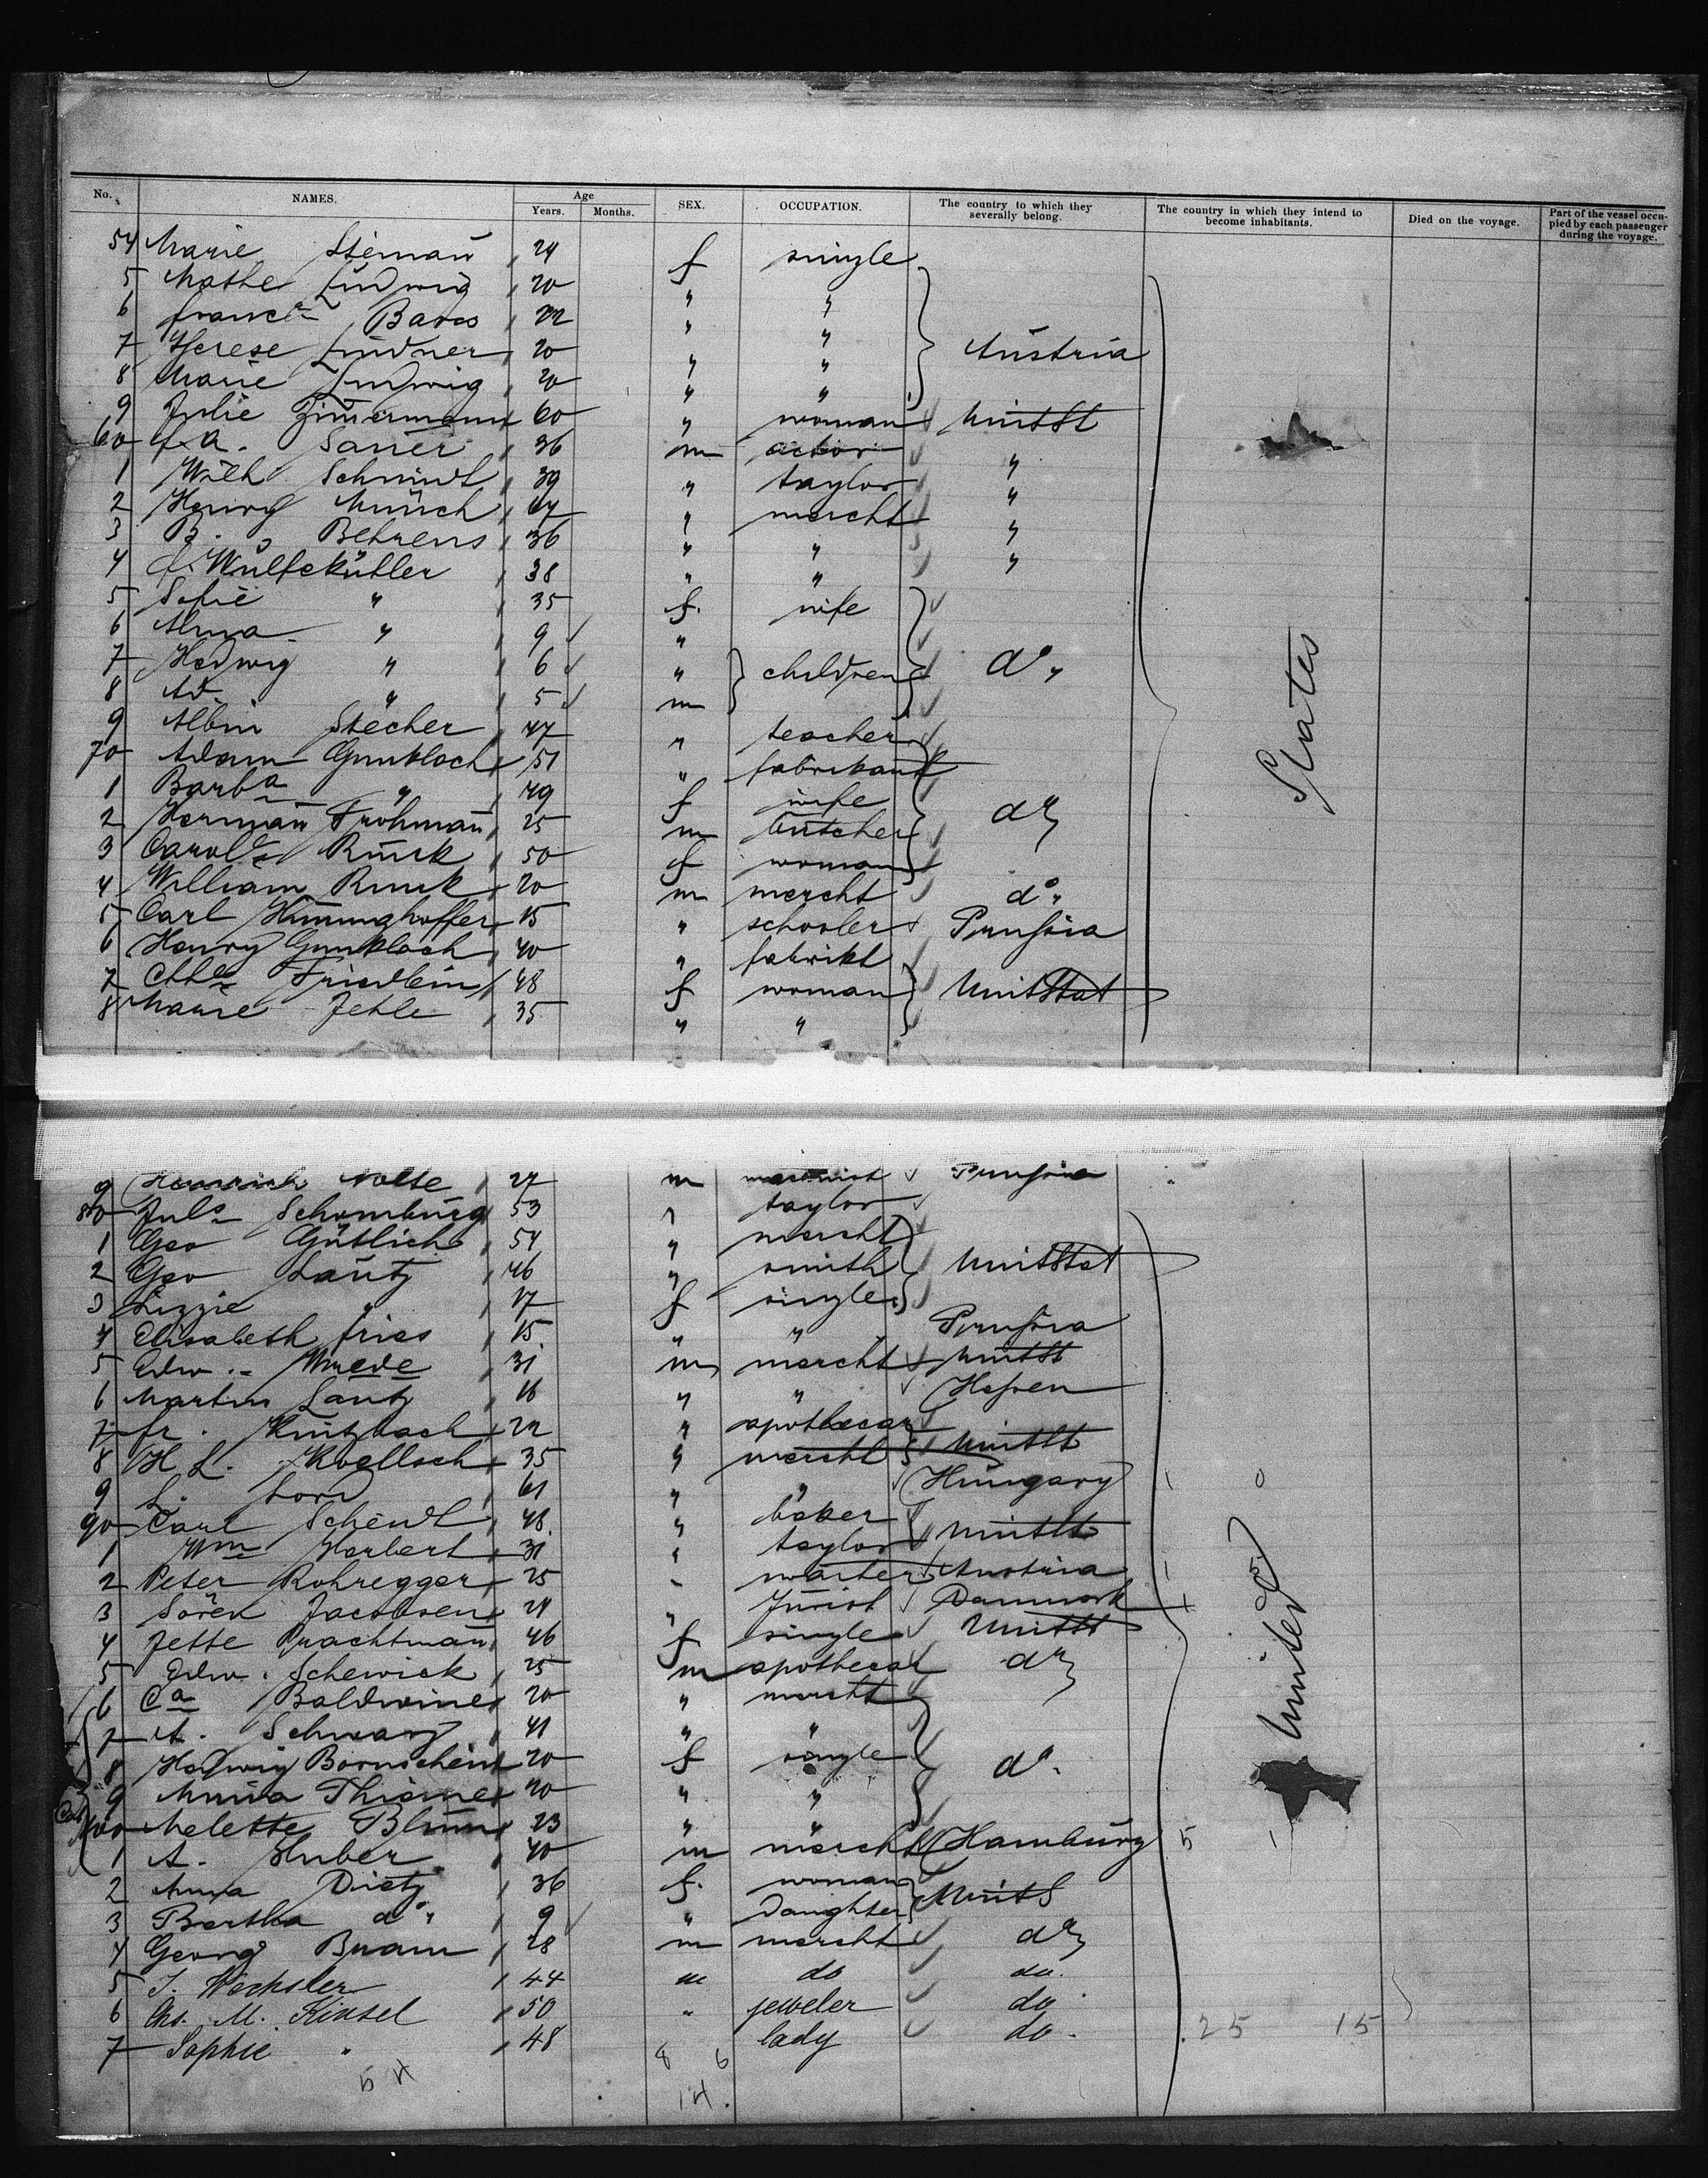 No. NAMES. Age Years. Months. SEX. OCCUPATION. The country to which they severally belong. The country in which they intend to become inhabitants. Died on the voyage. Part of the vessel occupied by each passenger during the voyage.
54 Marie 24 f single
5 Ludwig 20 " "
6 22 " "
7 Therese Lindner 20 " " Austria
8 Marie Ludwig 20 " "
9 Julie Zimermann 60 " woman UnitSt
60 Sauer 36 m actor "
1 Wilh Schmidt 39 " taylor "
2 Henry Münch 67 " mercht "
3 B. Behrens 36 " " "
4 38 " "
5 Sofie " 35 f. wife
6 Alma " 9 "
7 Hedwig " 6 " children do "
8 Ad. " 5 m
9 Albin Stecher 47 " teacher
70 Adam Gumbloch 51 " fabrikant
1 Barba " 49 f wife do
2 Herman Frohman 25 m butcher
3 Carole Ruuk 50 f woman
4 William Ruuk 20 m mercht do "
5 Carl 15 " schooler Prussia
6 Henry Gumbloch 40 " fabrikt
7 Friedlein 48 f woman UnitStat
8 Marie Jehle 35 " "
States
9 Heinrich Nolte 27 m machinist Prussia
80 Juls Schomburg 53 " taylor
1 Geo Gütlich 54 " mercht
2 Geo Lautz 46 " smith UnitStat
3 Lizzie " 17 f single
4 Elisabeth Fries 15 " " Prussia
5 Edw. Wrede 31 m mercht UnitSt
6 Martin Lautz 16 " " Hessen
7 Fr. Kintzbach 22 " apothecar
8 H L. 35 " mercht UnitSt
9 L. 61 " " Hungary 1 0
90 Carl Schendl 48. " baker
1 Wm Herbert 31 " taylor UnitSt
2 Peter Rohregger 25 " waiter Austria
3 Sören Jacobsen 24 " Jurist Danmark
4 Jette Prachtman 46 f single UnitSt
5 Edw. Schewick 25 m apothecar do
6 Ca Baldwine 20 " mercht
7 A. Schwarz 41 " "
8 Hedwig Bornschein 20 f single do.
9 Anna Thieme 20 " "
100 Melette Blum 23 " "
1 A. Huber 40 m mercht Hamburg 5 1
2 Anna Dietz 36 f. woman UnitS
3 Bertha do " 9 " Daughter
4 Georg Braun 28 m mercht do
5 J. Wechsler 44 m do do.
6 Chs. M. Kinsel 50 " jeweler do.
7 Sophie " 48 lady do.
United
25 15
54 8 6
14.